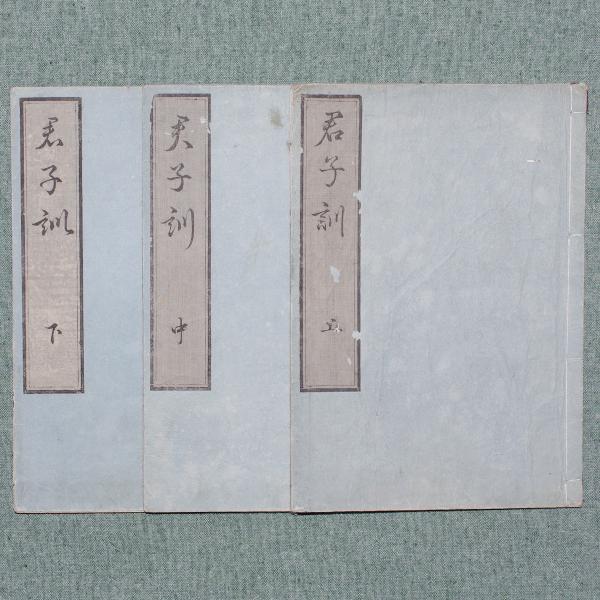 君子訓 上
君子訓 中
君子訓 下